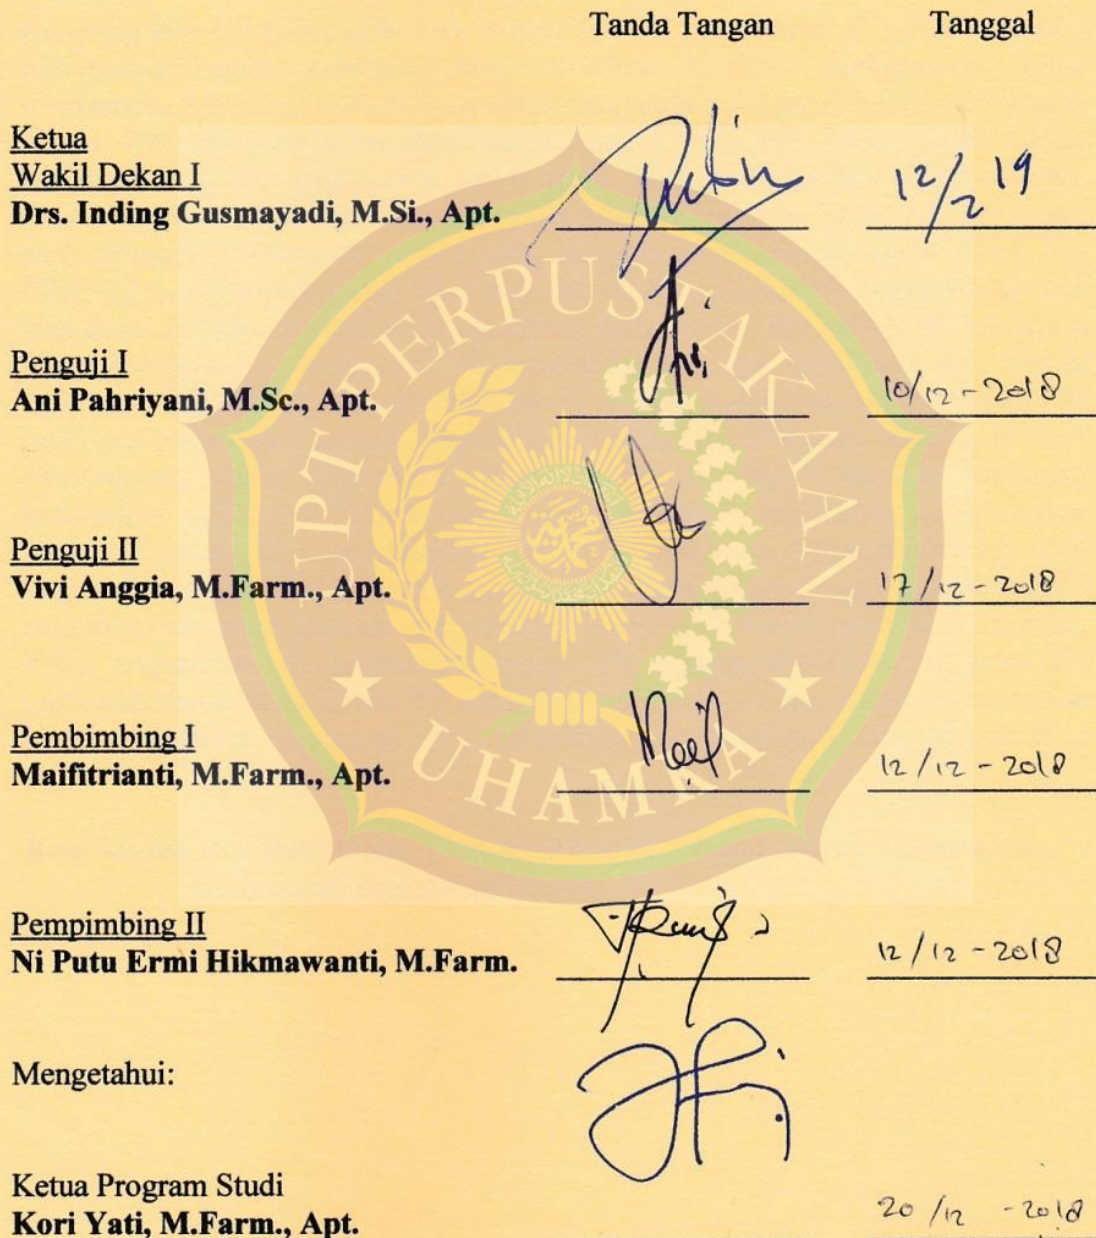 Tanda Tangan Tanggal
Ketua
Wakil Dekan I
Drs. Inding Gusmayadi, M.Si., Apt. 12/2 19
Penguji I
Ani Pahriyani, M.Sc., Apt. 10/12 - 2018
Penguji II
Vivi Anggia, M.Farm., Apt. 17/12 - 2018
Pembimbing I
Maifitrianti, M.Farm., Apt. 12/12 - 2018
Pempimbing II
Ni Putu Ermi Hikmawanti, M.Farm. 12/12 - 2018
Mengetahui:
Ketua Program Studi
Kori Yati, M.Farm., Apt. 20/12 - 2018
UPT PERPUSTAKAAN
UHAMKA